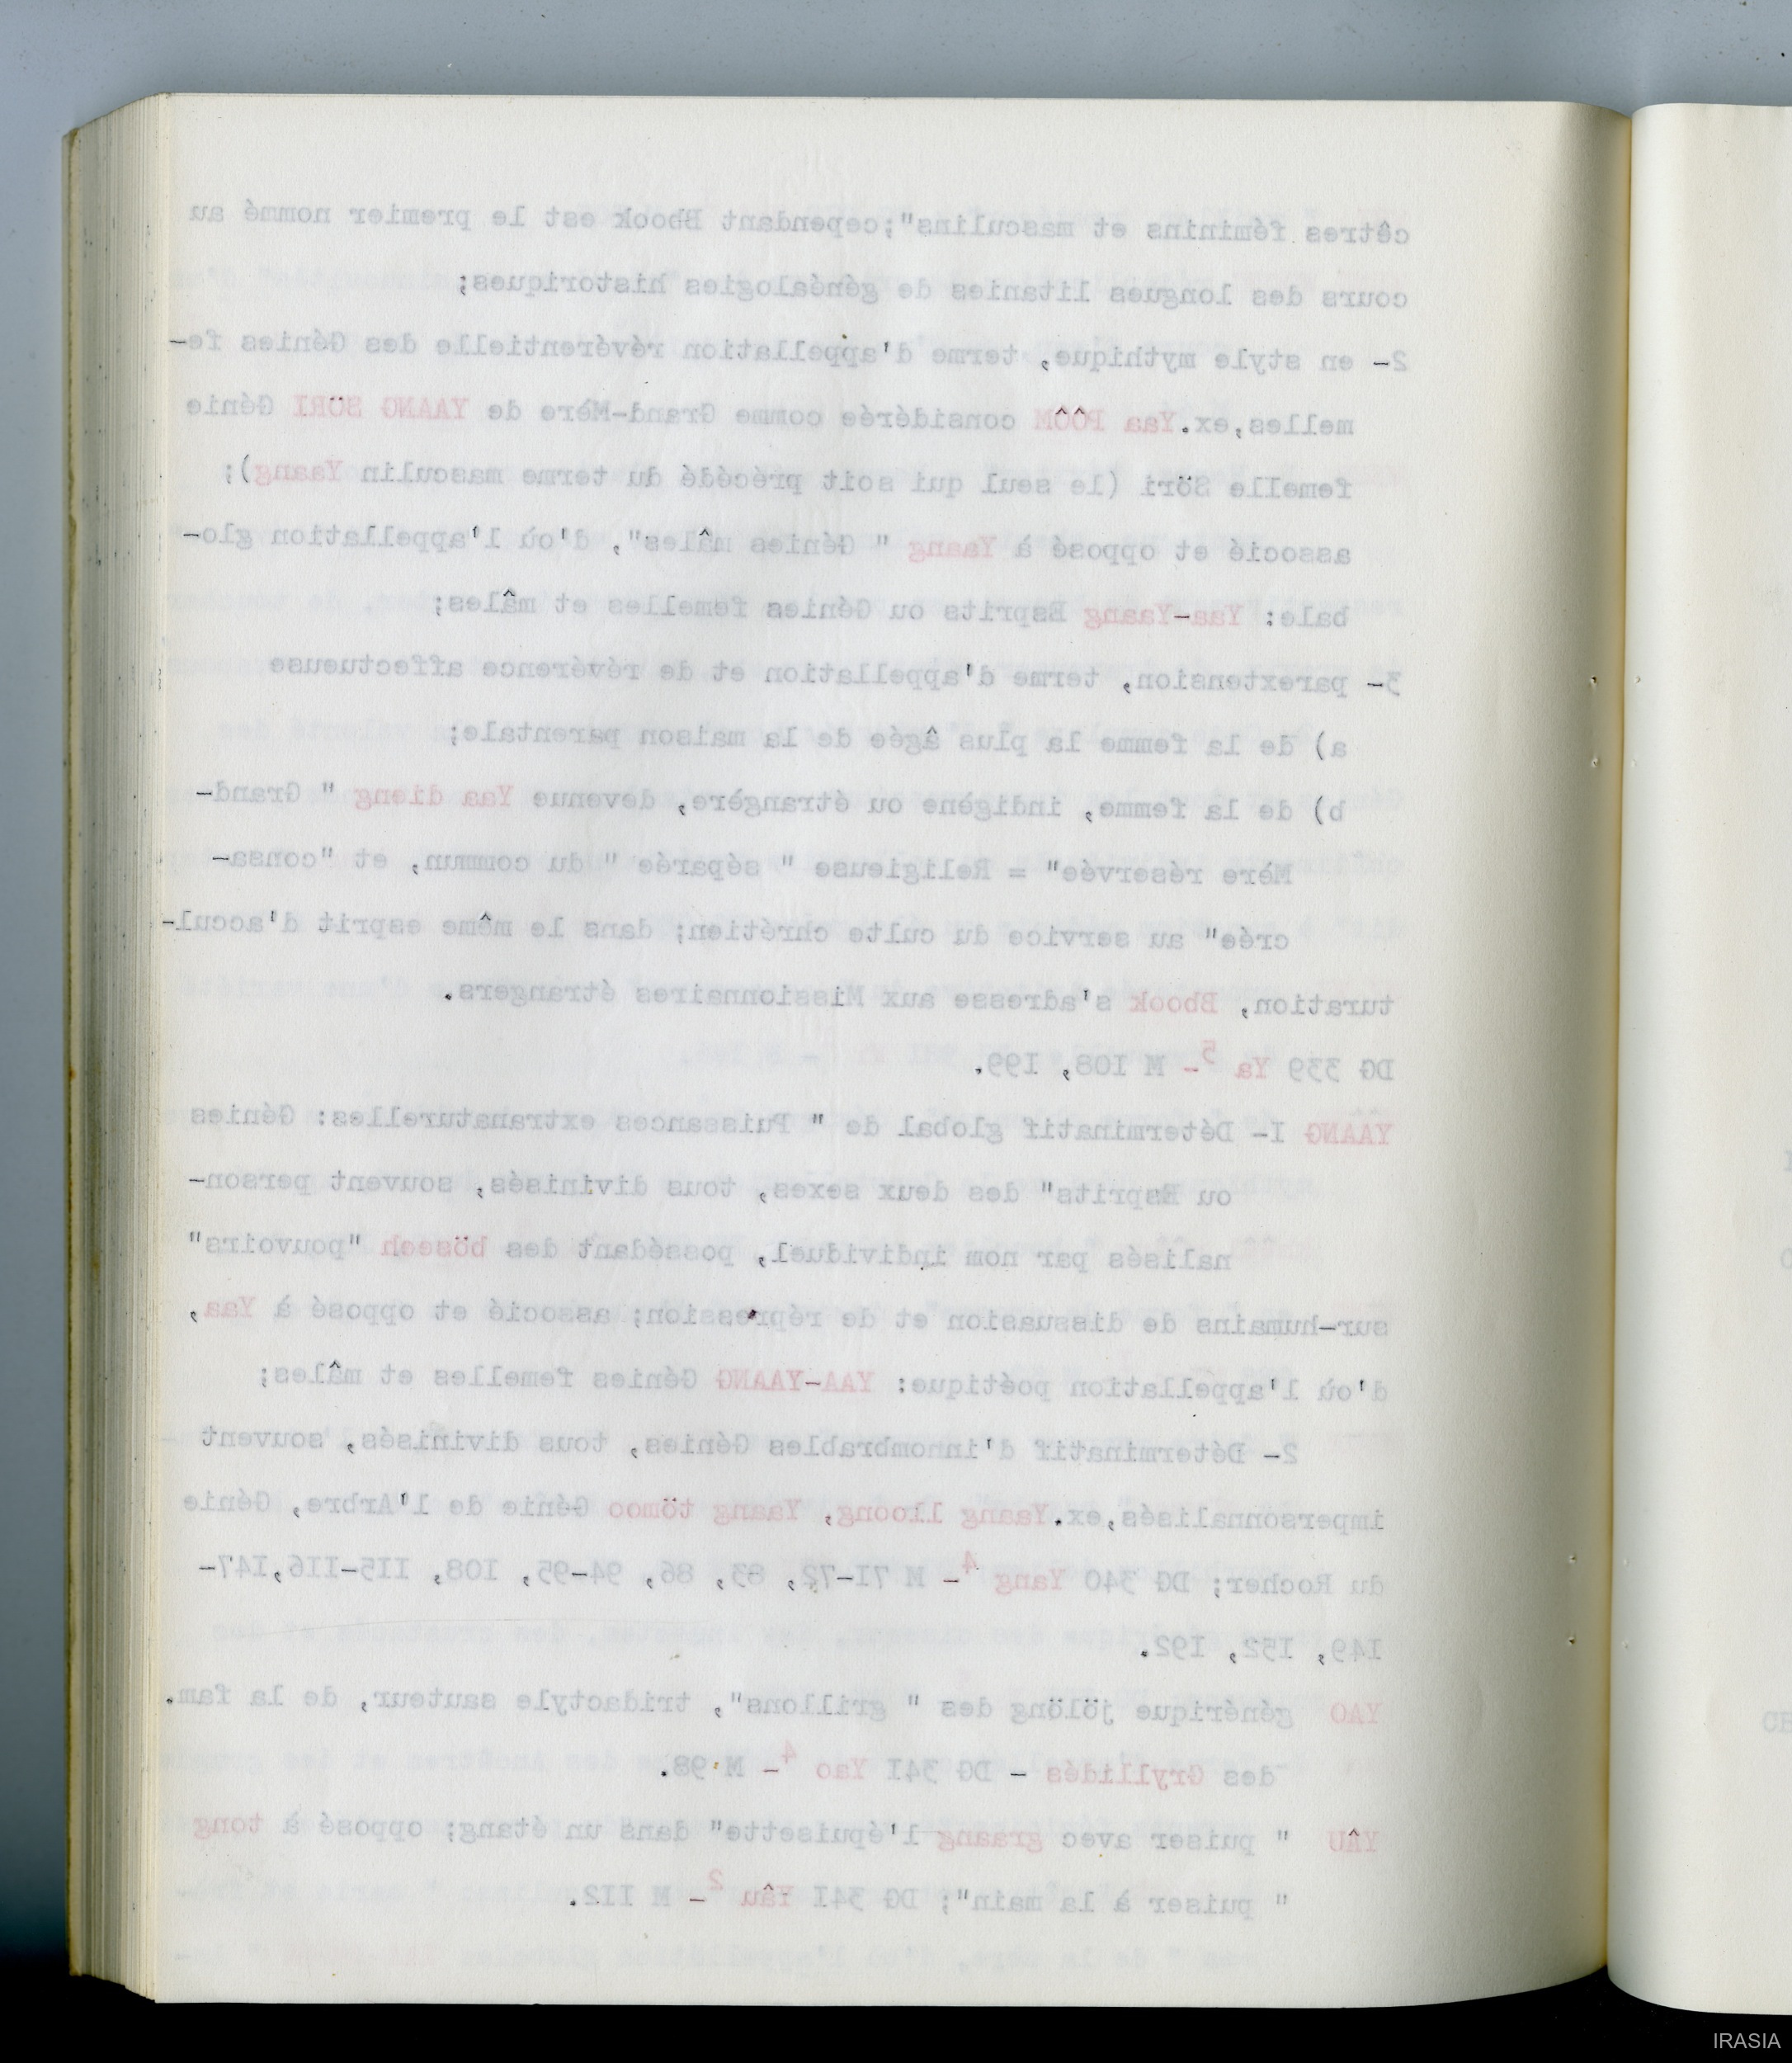 cêtres féminins et masculins";cependant Bbook est le premier nommé au
cours des longues litanies de généalogies historiques;
2- en style mythique, terme d'appellation révérentielle des Génies fe-
melles,ex.Yaa PÔÔM considérée comme Grand-Mère de YAANG SÖRI Génie
femelle Söri (le seul qui soit précédé du terme masculin Yaang);
associé et opposé à Yaang " Génies mâles", d'où l'appellation glo-
bale: Yaa-Yaang Esprits ou Génies femelles et mâles;
3- parextension, terme d'appellation et de révérence affectueuse
a) de la femme la plus âgée de la maison parentale;
b) de la femme, indigène ou étrangère, devenue Yaa dieng " Grand-
Mère réservée" = Religieuse " séparée " du commun, et "consa-
crée" au service du culte chrétien; dans le même esprit d'accul-
turation, Bbook s'adresse aux Missionnaires étrangers.
DG 339 Ya 5- M I08, I99.
YAANG I- Déterminatif global de " Puissances extranaturelles: Génies
ou Esprits" des deux sexes, tous divinisés, souvent person-
nalisés par nom individuel, possédant des böseh "pouvoirs"
sur-humains de dissuasion et de répression; associé et opposé à Yaa,
d'où l'appellation poétique: YAA-YAANG Génies femelles et mâles;
2- Déterminatif d'innombrables Génies, tous divinisés, souvent
impersonnalisés,ex.Yaang lloong, Yaang tömoo Génie de l'Arbre, Génie
du Rocher; DG 340 Yang 4- M 7I-72, 83, 86, 94-95, I08, II5-II6,I47-
I49, I52, I92.
YAO générique jölöng des " grillons", tridactyle sauteur, de la fam.
des Gryllidés - DG 34I Yao 4- M 98.
YÂU " puiser avec graang l'épuisette" dans un étang; opposé à tong
" puiser à la main"; DG 34I Yâu 2- M II2.
IRASIA